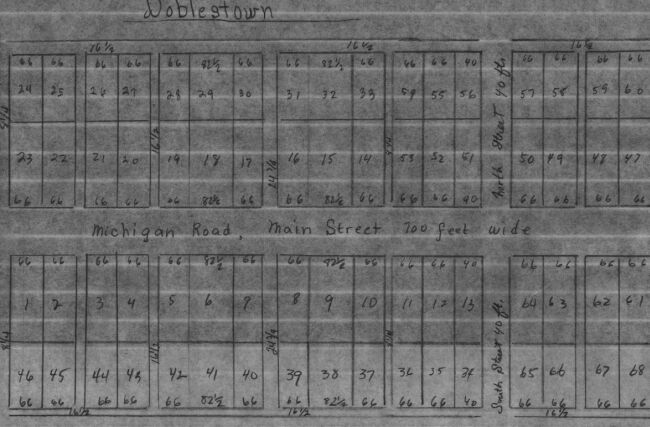 Noblestown
16½ 16½ 16½
66 66 66 66 66 82½ 66 66 82½ 66 66 66 40 66 66 66 66
24 25 26 27 28 29 30 31 32 33 54 55 56 57 58 59 60
16½
24¾
North Street 40 fts.
23 22 21 20 19 18 17 16 15 14 53 52 51 50 49 48 47
66 66 66 66 66 82½ 66 66 82½ 66 66 66 40 66 66 66 66
Michigan Road, Main Street 100 feet wide
66 66 66 66 66 82½ 66 66 82½ 66 66 66 40 66 66 66 66
1 2 3 4 5 6 7 8 9 10 11 12 13 64 63 62 61
8¼
16½
24¾
8¼
South Street 40 ft.
46 45 44 43 42 41 40 39 38 37 36 35 34 65 66 67 68
66 66 66 66 66 82½ 66 66 82½ 66 66 66 40 66 66 66 66
16½ 16½ 16½